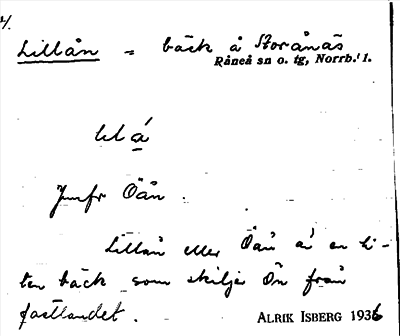 4.
Lillån = bäck å Storånäs
Råneå sn o. tg, Norrb. l.
lilå
Jmfr Öån.
Lillån eller Öån är en li-
ten bäck som skilje Ön från
fastlandet.
ALRIK ISBERG 1936